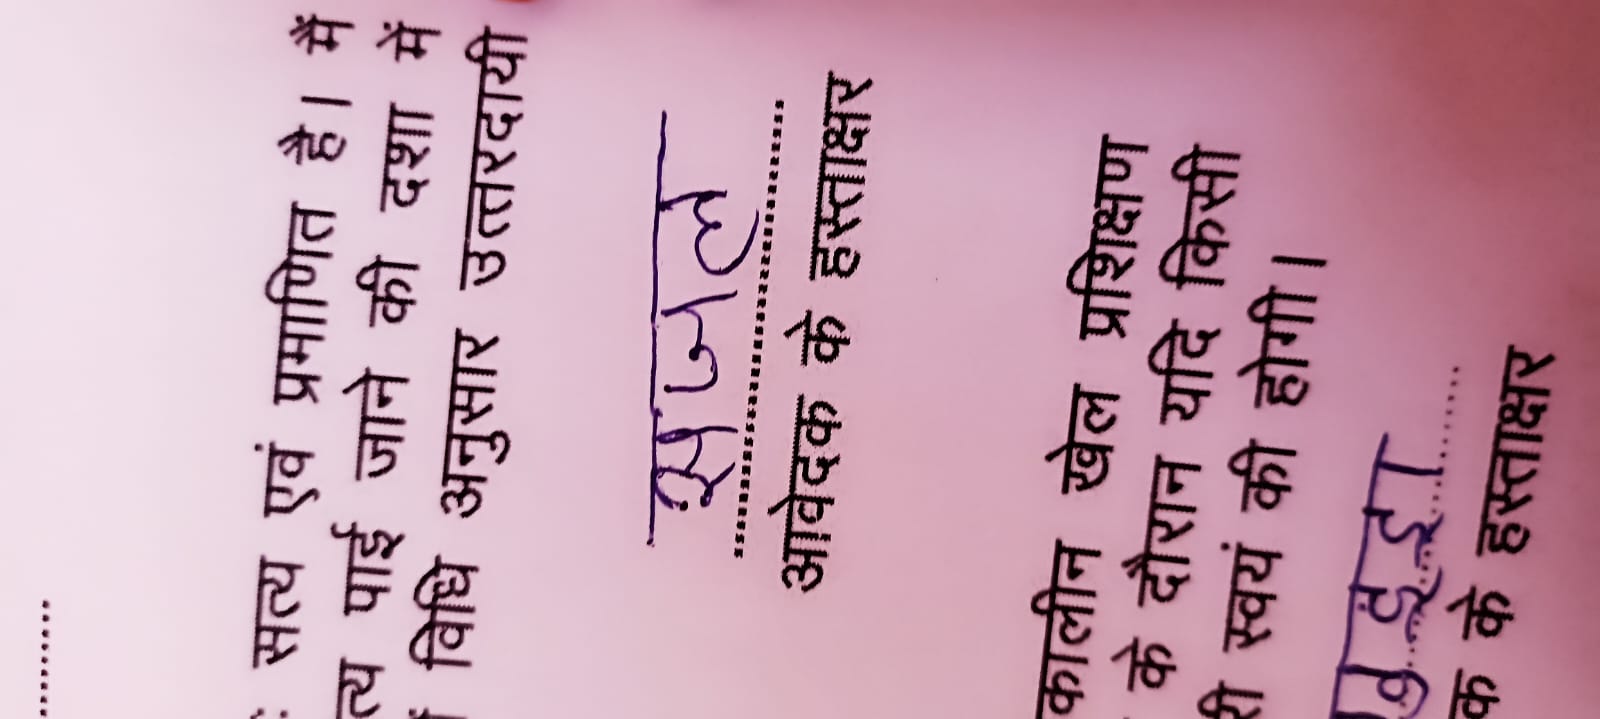 सत्य एवं प्रमाणित है। मैं
पाई जाने की दशा में
विधि अनुसार उत्तरदायी
आवेदक के हस्ताक्षर
कालीन खेल प्रशिक्षण
के दौरान यदि किसी
स्वयं की होगी।
के हस्ताक्षर